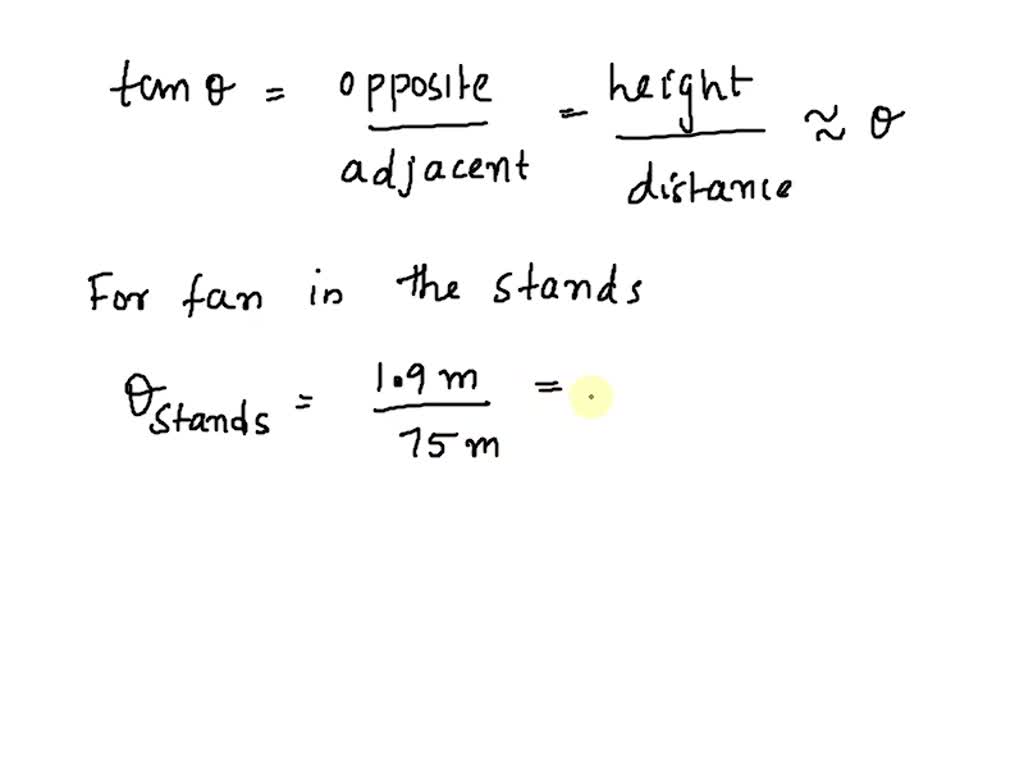 tan θ = opposite / adjacent = height / distance ≈ θ
For fan in the stands
θ stands = 1.9 m / 75 m =